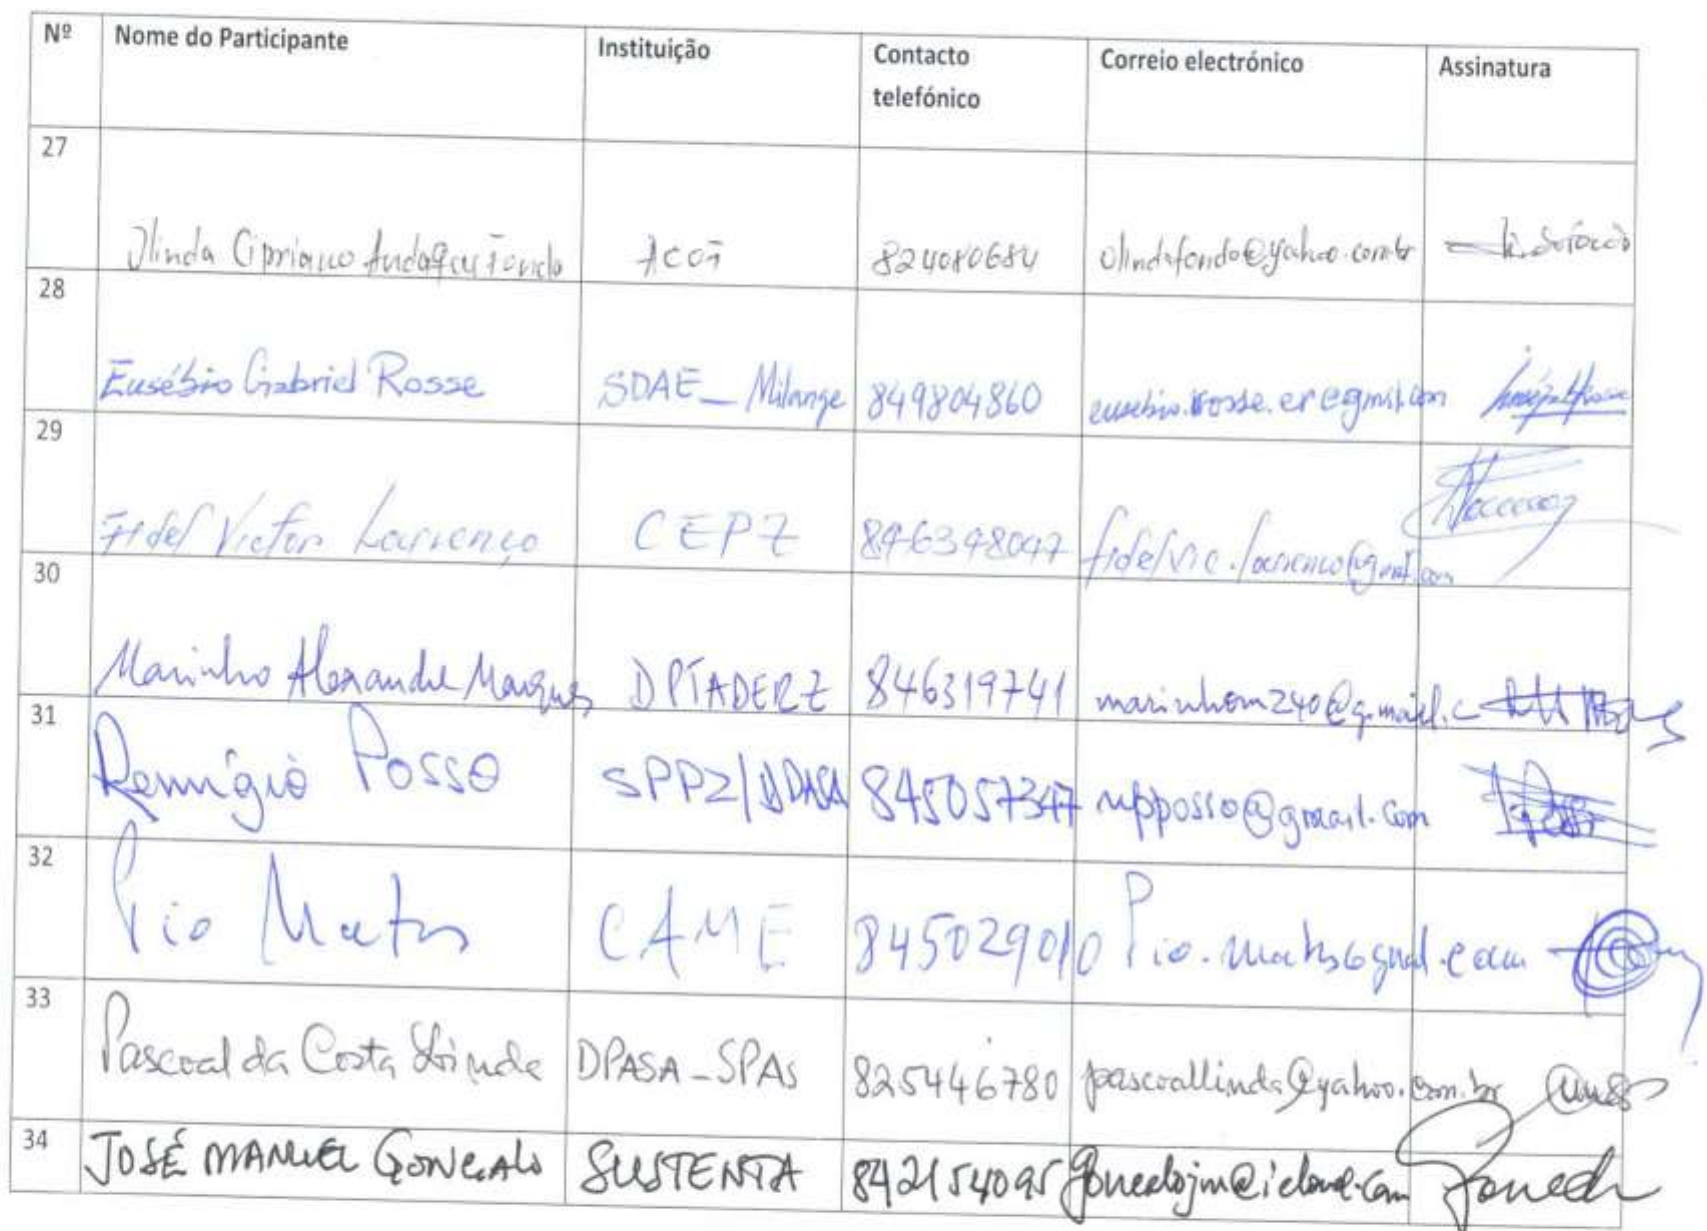 Nº Nome do Participante Instituição Contacto telefónico Correio electrónico Assinatura
27 Olinda Cipriano Fondo 824080684 olindafondo@yahoo.com.br
28 Eusébio Gabriel Rosse SDAE_Milange 849804860 eusebio.rosse.er@gmail.com
29 Fidel Victor Lourenço CEPZ 846348047
30 Marinho Alexandre Marques DPTADERZ 846319741 marinhom240@g.mail.c
31 Remígio Posso SPPZ/DPASA 845057347 rupposso@gmail.com
32 Pio Matos CAME 845029010
33 Pascoal da Costa Linda DPASA_SPAs 825446780 pascoallinda@yahoo.com.br
34 JOSÉ MANUEL GONÇALO SUSTENTA 842154095 goncalojm@icloud.com